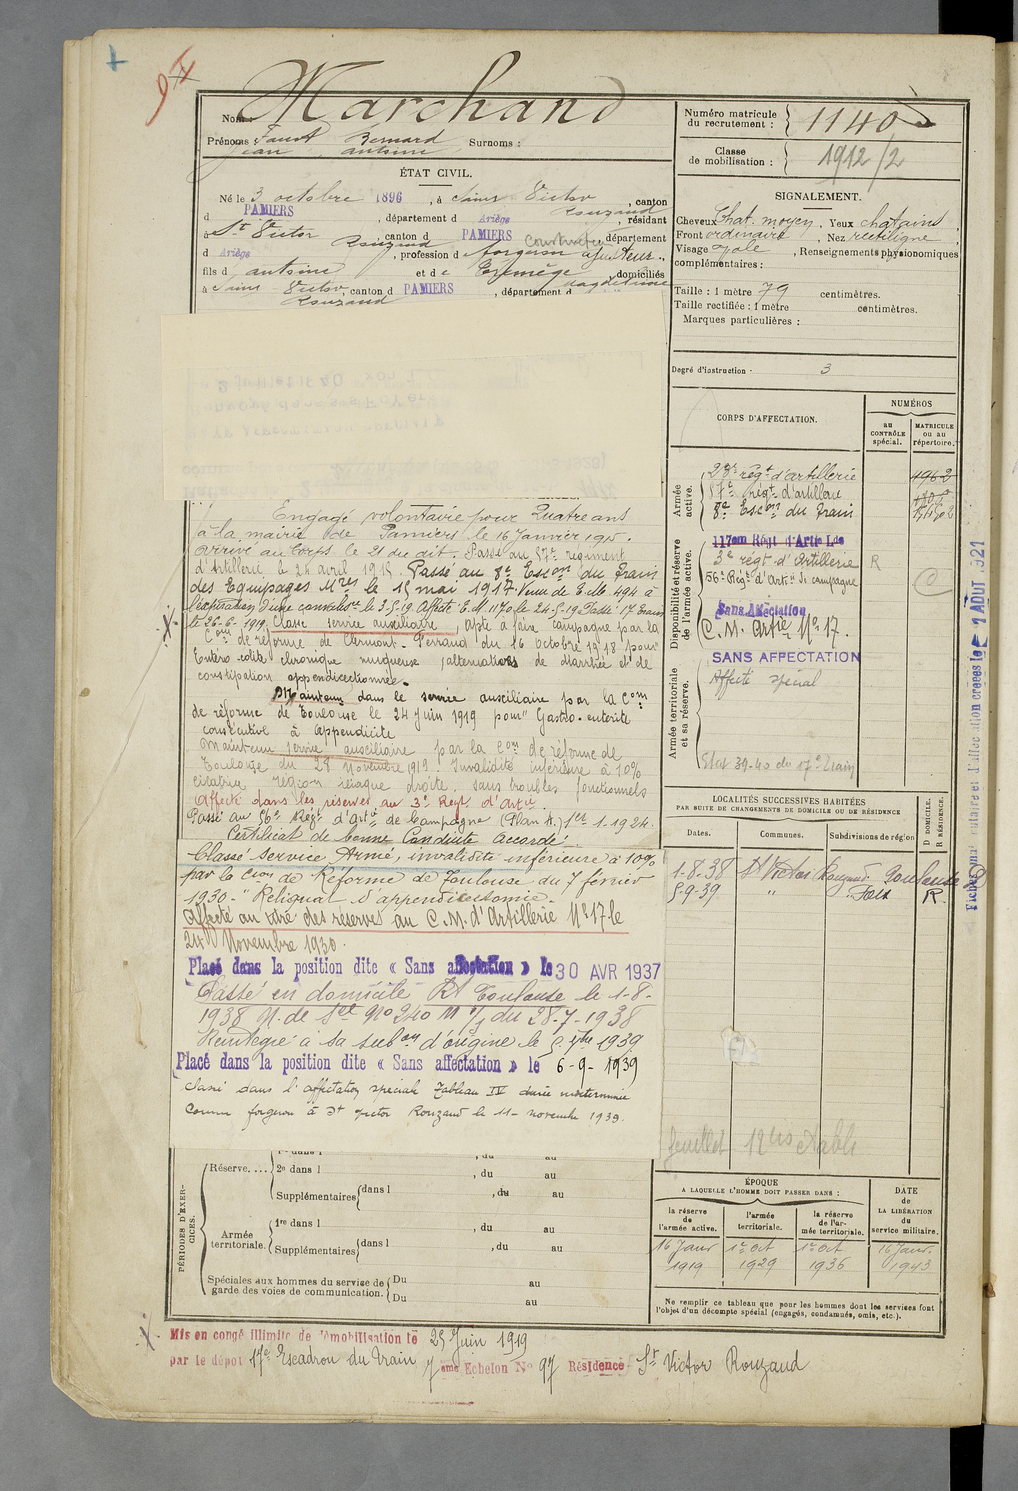 Marchand
Nom
Prénoms Faust Bernard Surnoms :
Jean Antoine
Numéro matricule
du recrutement : 1140
Classe
de mobilisation : 1912/2
ÉTAT CIVIL.
Né le 3 octobre 1896, à Saint Victor, canton
d PAMIERS, département d Ariège Rouzaud, résidant
à St Victor Rouzaud, canton d PAMIERS, département
d Ariège, profession d forgeron ajusteur,
fils d Antoine et d e , domiciliés
à Saint-Victor, canton d PAMIERS, département d
Rouzaud
SIGNALEMENT.
Cheveux Chat. moyen, Yeux chatains,
Front ordinaire, Nez rectiligne,
Visage ovale, Renseignements physionomiques
complémentaires :
Taille : 1 mètre 79 centimètres.
Taille rectifiée : 1 mètre centimètres.
Marques particulières :
Degré d'instruction : 3
CORPS D'AFFECTATION.
NUMÉROS
au CONTRÔLE spécial.
MATRICULE ou au répertoire.
Armée active.
régt d'artillerie 4962
57e régt d'artillerie
8e Escon du Train
Disponibilité et réserve de l'armée active.
117em Régt d'Artie Lde
3e régt d'Artillerie R
56e Régt d'Artie de campagne C
Sans Affectation
C. M. Artie No 17.
Armée territoriale et sa réserve.
SANS AFFECTATION
Affecté spécial
Stat 39-40 du 17e Train
Engagé volontaire pour Quatre ans
à la mairie de Pamiers le 16 Janvier 1915.
Arrivé au Corps le 21 du dit. Passé au 57e régiment
d'Artillerie le 26 avril 1915. Passé au 8e Escon du Train
des Equipages Mres le 15 mai 1917. Venu de E.tte 494 à
l'expiration d'une convalsce le 3-5-19. Affecté E.M. 1170 le 24-5-19. Passé 17e Train
le 26-6-1919. Classé service auxiliaire, apte à faire campagne par la
Con de réforme de Clermont-Ferrand du 16 octobre 1918 pour
Entéro colite chronique muqueuse, alternatives de diarrhée et de
constipation appendicectionnée.
Maintenu dans le service auxiliaire par la Com
de réforme de Toulouse le 24 Juin 1919 pour Gastro-entérite
consécutive à appendicite
Maintenu service auxiliaire par la Con de réforme de
Toulouse du 28 Novembre 1919. Invalidité inférieure à 10%
cicatrice région iliaque droite, sans troubles fonctionnels
Affecté dans les réserves au 3e Regt d'Artie.
Passé au 56e Régt d'Artie de Campagne (Plan A.) 1er-1.1924.
Certificat de bonne Conduite Accordé
Classé Service Armé, invalidité inférieure à 10%
par la Cion de Réforme de Toulouse du 7 février
1930 - Reliquat d'appendicectomie.
Affecté au titre des réserves au C.M. d'Artillerie No 17 le
24 Novembre 1930.
Placé dans la position dite « Sans affectation » le 30 AVR 1937
Passé en domicile Rt Toulouse le 1-8-
1938 N. de Sce No 240 du 28-7-1938
Réintégré à sa subon d'origine le 5 7bre 1939
Placé dans la position dite « Sans affectation » le 6-9-1939
Classé dans l'affectation spéciale Tableau IV durée indéterminée
Comme forgeron à St Victor Rouzaud le 11-novembre 1939.
LOCALITÉS SUCCESSIVES HABITÉES
PAR SUITE DE CHANGEMENTS DE DOMICILE OU DE RÉSIDENCE
Dates.
Communes.
Subdivisions de région
D DOMICILE.
R RÉSIDENCE.
1-8-38 St Victor Rouzaud Toulouse D
5-9-39 " Foix R.
feuillet 12 bis établi
Fiche établie et d'allocation créées le 1 AOUT 1921
PÉRIODES D'EXERCICES.
Réserve.... 2e dans l , du au
Supplémentaires dans l , du au
Armée territoriale. 1re dans l , du au
Supplémentaires dans l , du au
Spéciales aux hommes du service de garde des voies de communication. Du au
Du au
ÉPOQUE
A LAQUELLE L'HOMME DOIT PASSER DANS :
DATE DE LA LIBÉRATION du service militaire.
la réserve de l'armée active.
l'armée territoriale.
la réserve de l'armée territoriale.
16 Janv 1919
1er oct 1929
1er oct 1936
16 Janv. 1943
Ne remplir ce tableau que pour les hommes dont les services font
l'objet d'un décompte spécial (engagés, condamnés, omis, etc.).
Mis en congé illimité de démobilisation le 25 Juin 1919
par le dépôt 17e Escadron du Train 7eme Echelon No 97 Résidence St Victor Rouzaud